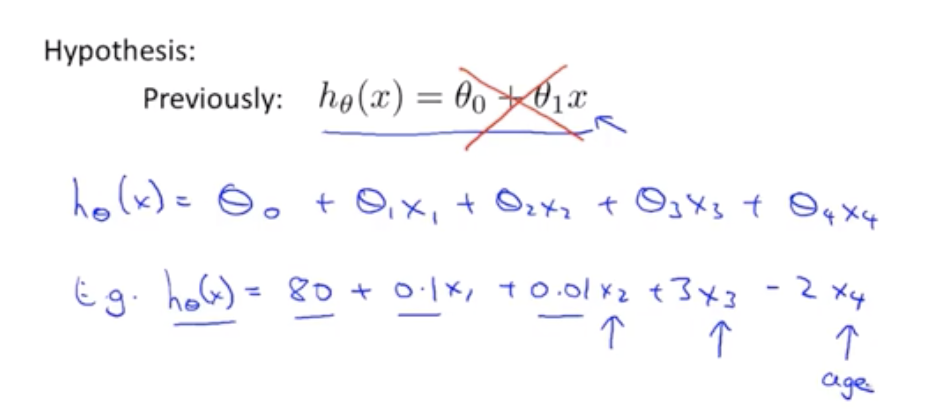 Hypothesis:
Previously: hθ(x) = θ0 + θ1x
hθ(x) = θ0 + θ1x1 + θ2x2 + θ3x3 + θ4x4
E.g. hθ(x) = 80 + 0.1x1 + 0.01x2 + 3x3 - 2x4
age